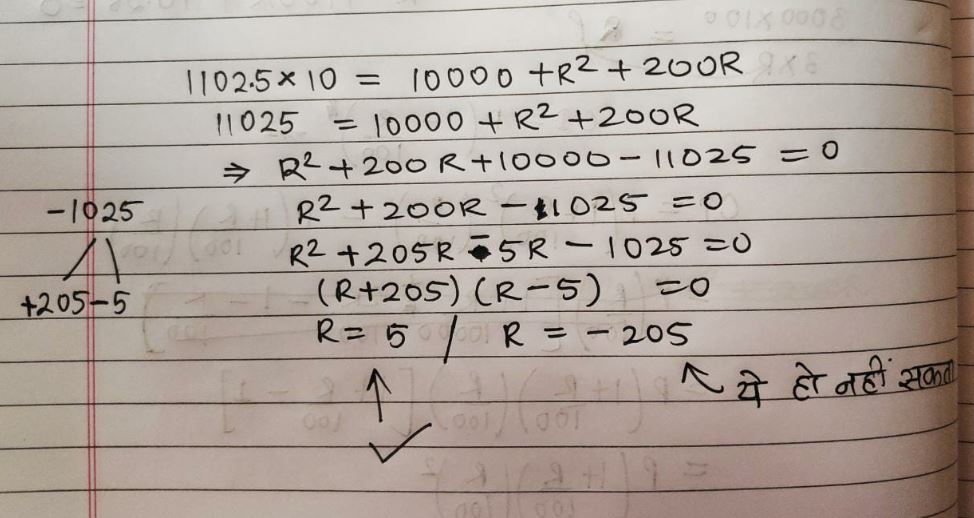 1102.5 × 10 = 10000 + R² + 200R
11025 = 10000 + R² + 200R
⇒ R² + 200R + 10000 - 11025 = 0
R² + 200R - 1025 = 0
R² + 205R - 5R - 1025 = 0
(R+205) (R-5) = 0
R = 5 / R = -205
ये हो नहीं सकता
-1025
+205 -5